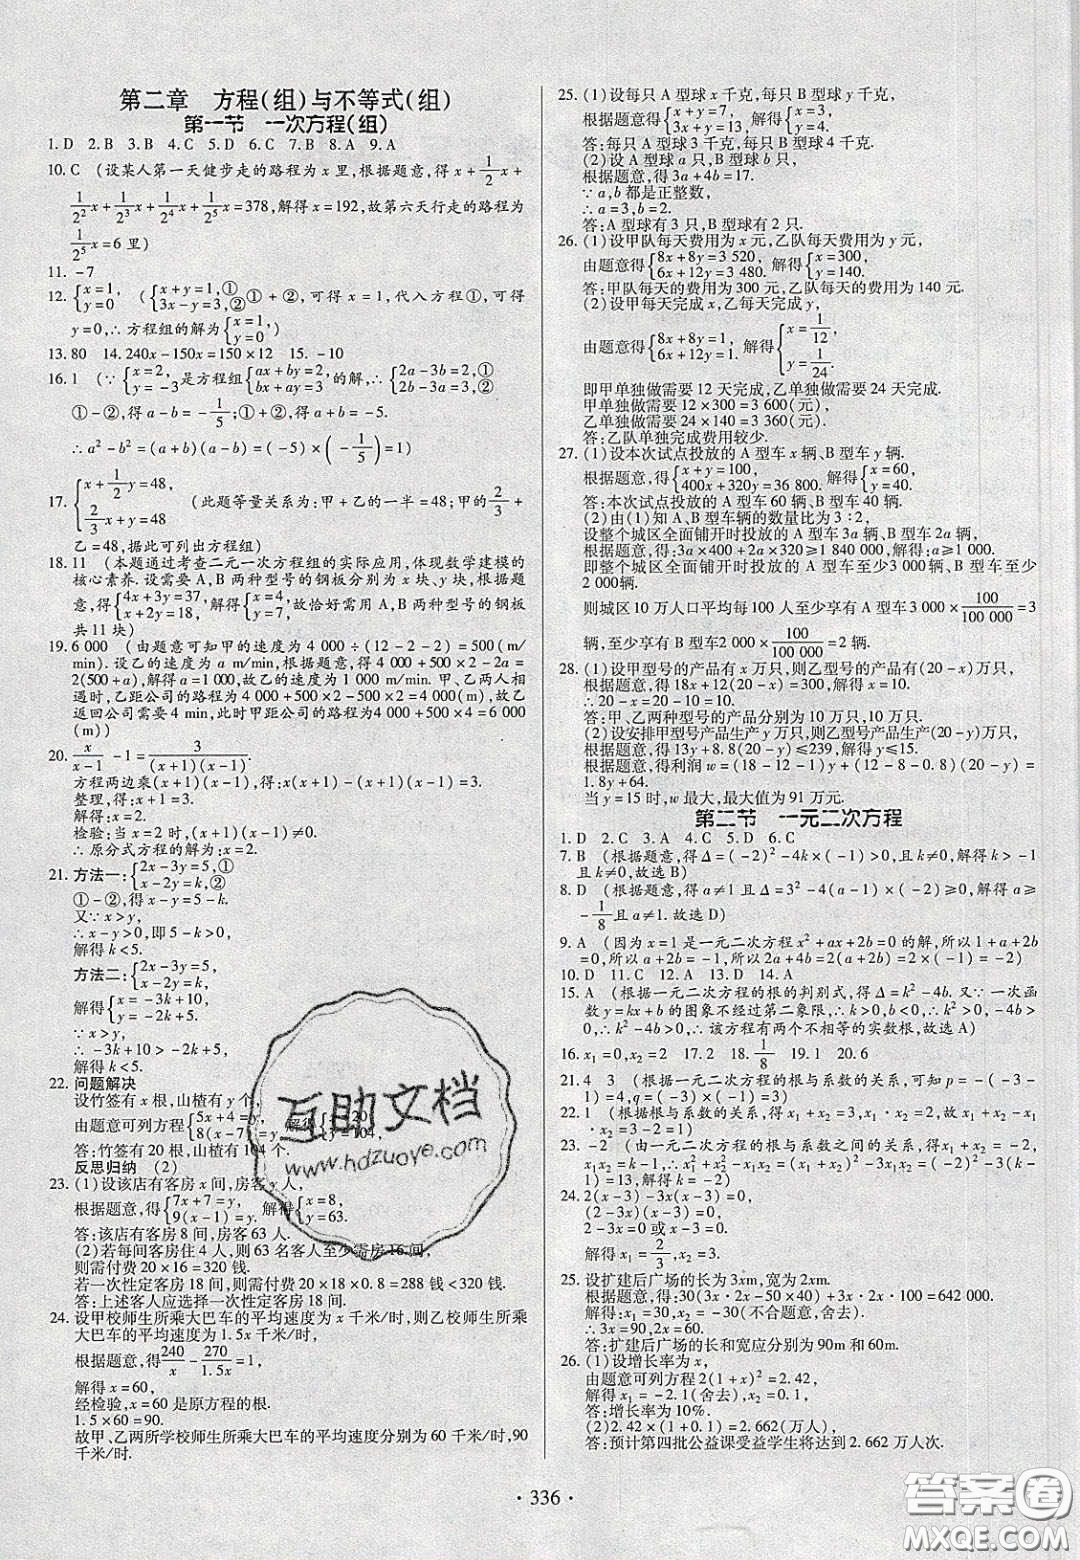 第二章　方程(组)与不等式(组)
第一节　一次方程(组)
1. D　2. B　3. B　4. C　5. D　6. C　7. B　8. A　9. A
10. C　(设某人第一天健步走的路程为 x 里,根据题意,得 x+1/2x+
1/2²x+1/2³x+1/2⁴x+1/2⁵x=378,解得 x=192,故第六天行走的路程为
1/2⁵x=6 里)
11. -7
12. {x=1, y=0　({x+y=1,① 3x-y=3② ①+②,可得 x=1,代入方程①,可得
y=0,∴方程组的解为{x=1, y=0)
13. 80　14. 240x-150x=150×12　15. -10
16. 1　(∵{x=2, y=-3是方程组{ax+by=2, bx+ay=3的解,∴{2a-3b=2,① 2b-3a=3,②
①-②,得 a-b=-1/5;①+②,得 a+b=-5.
∴a²-b²=(a+b)(a-b)=(-5)×(-1/5)=1)
17. {x+1/2y=48, 2/3x+y=48　(此题等量关系为:甲+乙的一半=48;甲的2/3+
乙=48,据此可列出方程组)
18. 11　(本题通过考查二元一次方程组的实际应用,体现数学建模的
核心素养.设需要 A,B 两种型号的钢板分别为 x 块、y 块,根据题
意,得{4x+3y=37, x+2y=18,解得{x=4, y=7,故恰好需用 A,B 两种型号的钢板
共 11 块)
19. 6 000　(由题意可知甲的速度为 4 000÷(12-2-2)=500(m/
min).设乙的速度为 a m/min,根据题意,得 4 000+500×2-2a=
2(500+a),解得 a=1000,故乙的速度为 1 000 m/min.甲、乙两人相
遇时,乙距公司的路程为4 000+500×2-500×2=4 000(m),故乙
返回公司需要 4 min,此时甲距公司的路程为4 000+500×4=6 000
(m))
20. x/(x-1) -1=3/((x+1)(x-1)).
方程两边乘(x+1)(x-1),得:x(x+1)-(x+1)(x-1)=3.
整理,得:x+1=3.
解得:x=2.
检验:当 x=2 时,(x+1)(x-1)≠0,
∴原分式方程的解为:x=2.
21. 方法一:{2x-3y=5,① x-2y=k,②
①-②,得:x-y=5-k.
又∵x>y,
∴x-y>0,即 5-k>0,
解得 k<5.
方法二:{2x-3y=5, x-2y=k,
解得{x=-3k+10, y=-2k+5.
∵x>y,
∴-3k+10>-2k+5,
解得 k<5.
22. 问题解决
设竹签有 x 根,山楂有 y 个.
由题意可列方程{5x+4=y, 8(x-7)=y,解得{x=20, y=104,
答:竹签有 20 根,山楂有 104 个.
反思归纳　(2)
23. (1)设该店有客房 x 间,房客 y 人,
根据题意,得{7x+7=y, 9(x-1)=y,解得{x=8, y=63.
答:该店有客房 8 间,房客 63 人.
(2)若每间客房住 4 人,则 63 名客人至少需房 16 间,
则需付费 20×16=320 钱.
若一次性定客房 18 间,则需付费20×18×0.8=288 钱<320 钱.
答:上述客人应选择一次性定客房 18 间.
24. 设甲校师生所乘大巴车的平均速度为 x 千米/时,则乙校师生所乘
大巴车的平均速度为 1.5x 千米/时,
根据题意,得240/x-270/1.5x=1.
解得 x=60,
经检验,x=60 是原方程的根.
1.5×60=90.
故甲、乙两所学校师生所乘大巴车的平均速度分别为 60 千米/时,90
千米/时.
25. (1)设每只 A 型球 x 千克,每只 B 型球 y 千克,
根据题意得{x+y=7, 3x+y=13,解得{x=3, y=4.
答:每只 A 型球 3 千克,每只 B 型球 4 千克.
(2)设 A 型球 a 只,B 型球 b 只.
根据题意,得 3a+4b=17.
∵a,b 都是正整数,
∴a=3,b=2.
答:A 型球有 3 只,B 型球有 2 只.
26. (1)设甲队每天费用为 x 元,乙队每天费用为 y 元,
由题意得{8x+8y=3 520, 6x+12y=3 480.解得{x=300, y=140.
答:甲队每天的费用为 300 元,乙队每天的费用为 140 元.
(2)设甲每天完成 x,乙每天完成 y.
由题意得{8x+8y=1, 6x+12y=1.解得{x=1/12, y=1/24.
即甲单独做需要 12 天完成,乙单独做需要 24 天完成.
甲单独做需要 12×300=3 600(元),
乙单独做需要 24×140=3 360(元).
答:乙队单独完成费用较少.
27. (1)设本次试点投放的 A 型车 x 辆、B 型车 y 辆.
根据题意,得{x+y=100, 400x+320y=36 800.解得{x=60, y=40.
答:本次试点投放的 A 型车 60 辆、B 型车 40 辆.
(2)由(1)知 A、B 型车辆的数量比为 3∶2,
设整个城区全面铺开时投放的 A 型车 3a 辆、B 型车 2a 辆,
根据题意,得:3a×400+2a×320≥1 840 000,解得:a≥1 000.
即整个城区全面铺开时投放的 A 型车至少3 000 辆、B 型车至少
2 000 辆.
则城区 10 万人口平均每 100 人至少享有 A 型车3 000×100/100 000=3
辆,至少享有 B 型车2 000×100/100 000=2 辆.
28. (1)设甲型号的产品有 x 万只,则乙型号的产品有(20-x)万只,
根据题意,得 18x+12(20-x)=300,解得 x=10.
∴20-x=20-10=10.
答:甲、乙两种型号的产品分别为 10 万只,10 万只.
(2)设安排甲型号产品生产 y 万只,则乙型号产品生产(20-y)万只,
根据题意,得 13y+8.8(20-y)≤239,解得 y≤15.
根据题意,得利润 w=(18-12-1)y+(12-8-0.8)(20-y)=
1.8y+64.
当 y=15 时,w 最大,最大值为 91 万元.
第二节　一元二次方程
1. D　2. C　3. A　4. C　5. D　6. C
7. B　(根据题意,得 Δ=(-2)²-4k×(-1)>0,且 k≠0,解得 k>-1
且 k≠0.故选 B)
8. D　(根据题意,得 a≠1 且 Δ=3²-4(a-1)×(-2)≥0,解得 a≥
-1/8且 a≠1.故选 D)
9. A　(因为 x=1 是一元二次方程 x²+ax+2b=0 的解,所以 1+a+2b
=0,所以 a+2b=-1,所以 2a+4b=2(a+2b)=-2.故选 A)
10. D　11. C　12. A　13. D　14. A
15. A　(根据一元二次方程的根的判别式,得 Δ=k²-4b.又∵一次函
数y=kx+b 的图象不经过第二象限,∴k>0,b≤0,∴k²>0,-4b≥
0.∴Δ=k²-4b>0.∴该方程有两个不相等的实数根,故选 A)
16. x₁=0,x₂=2　17. 2　18. 1/8　19. 1　20. 6
21. 4　3　(根据一元二次方程的根与系数的关系,可知 p=-(-3-
1)=4,q=(-3)×(-1)=3)
22. 1　(根据根与系数的关系,得 x₁+x₂=3,x₁·x₂=2,故 x₁+x₂-x₁·
x₂=3-2=1)
23. -2　(由一元二次方程的根与系数之间的关系,得x₁+x₂=-k,
x₁x₂=-3.∴x₁²+x₂²-x₁x₂=(x₁+x₂)²-3x₁x₂=(-k)²-3×(k-
1)=13,解得 k=-2)
24. 2(x-3)-3x(x-3)=0,
(2-3x)(x-3)=0.
2-3x=0 或 x-3=0.
解得 x₁=2/3,x₂=3.
25. 设扩建后广场的长为 3xm,宽为 2xm.
根据题意,得:30(3x·2x-50×40)+3x·2x·100=642 000.
解得:x₁=30,x₂=-30(不合题意,舍去).
∴3x=90,2x=60.
答:扩建后广场的长和宽应分别为 90m 和 60m.
26. (1)设增长率为 x,
由题意可列方程 2(1+x)²=2.42,
解得 x₁=-2.1(舍去),x₂=0.1.
答:增长率为 10%.
(2)2.42×(1+0.1)=2.662(万人),
答:预计第四批公益课受益学生将达到 2.662 万人次.
·336·
互助文档
www.hdzuoye.com
答案圈
MXQE.COM